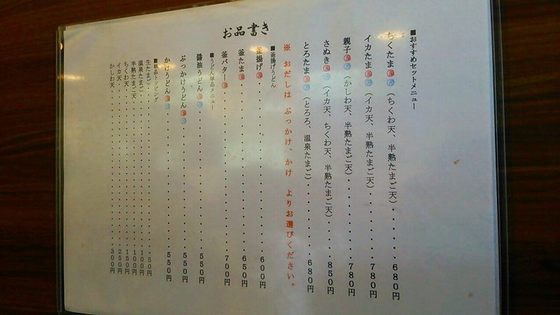 お品書き
■おすすめセットメニュー
ちくたま（ちくわ天、半熟たまご天）680円
イカたま（イカ天、半熟たまご天）780円
親子（かしわ天、半熟たまご天）780円
さぬき（イカ天、ちくわ天、半熟たまご天）850円
とろたま（とろろ、温泉たまご）680円
※ おだしは ぶっかけ、かけ よりお選びください。
■釜揚げうどん
釜揚げ 600円
釜たま 650円
釜バター 700円
醤油うどん 550円
ぶっかけうどん 550円
かけうどん 550円
生たまご 50円
温泉たまご 100円
半熟たまご天 100円
ちくわ天 150円
イカ天 250円
かしわ天 300円